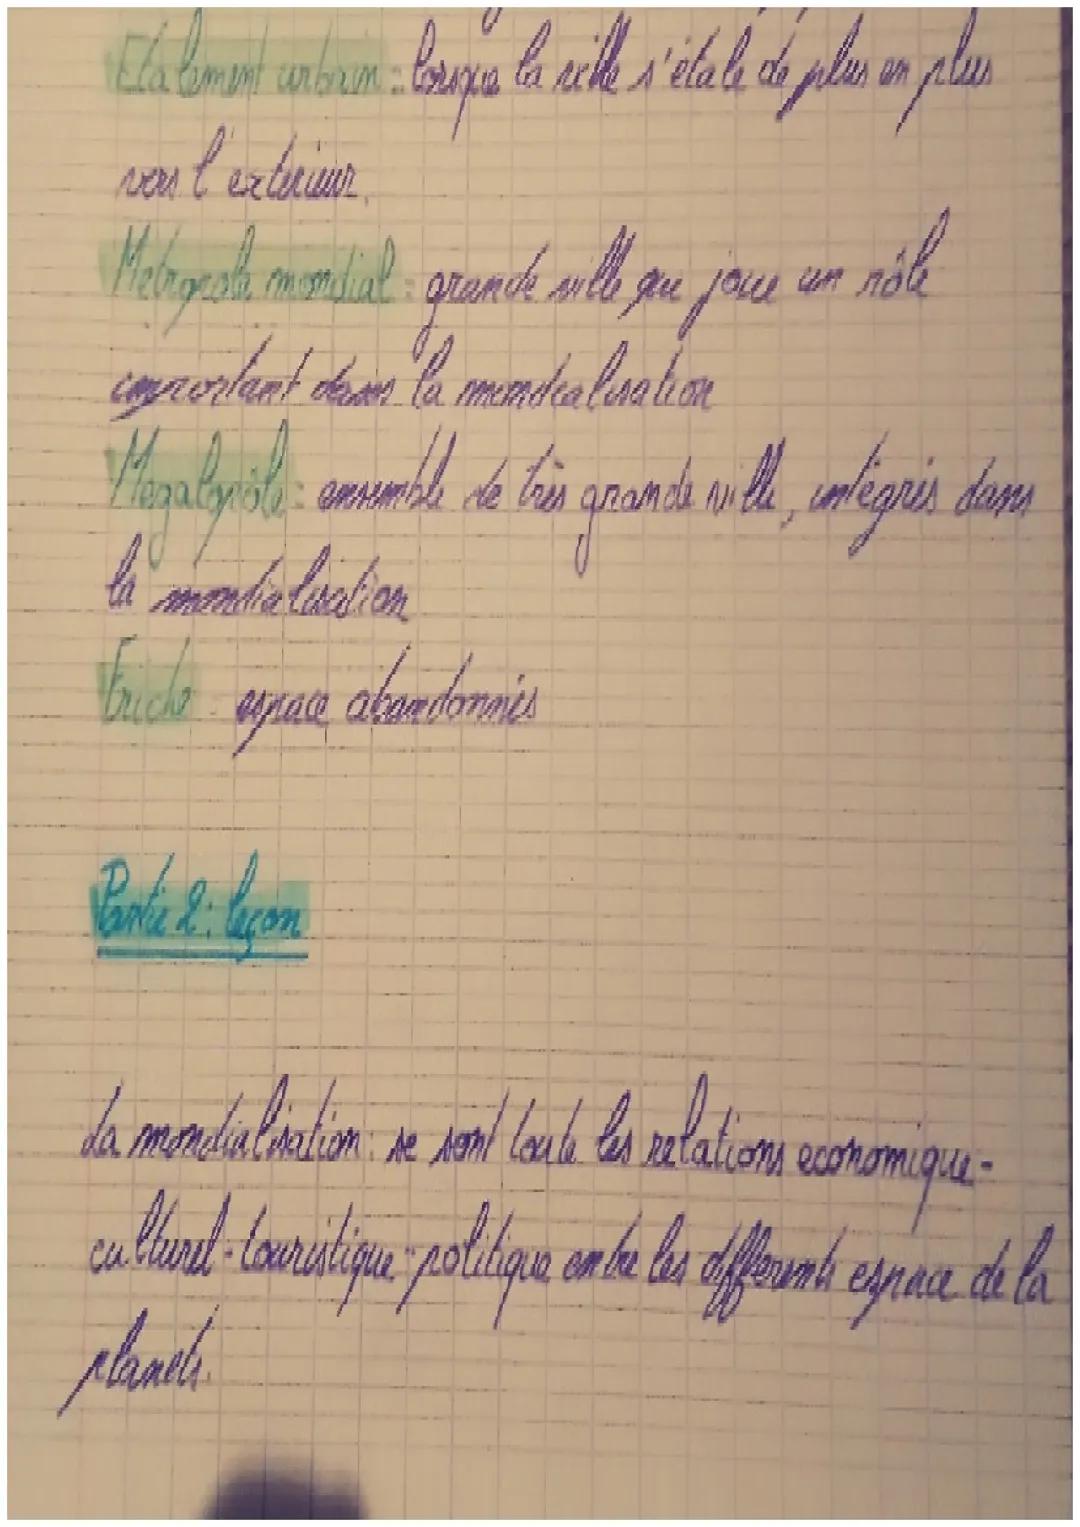 Etalement urbain : lorsque la ville s'étale de plus en plus
vers l'exterieur.
Métropole mondial : grande ville qui joue un rôle
important dans la mondialisation
Mégalopôle : ensemble de très grande ville, intégrés dans
la mondialisation
Friche : espace abandonnés
Partie 2 : leçon
La mondialisation : se sont toute les relations economique -
culturel - touristique - politique entre les différents espace de la
planete.